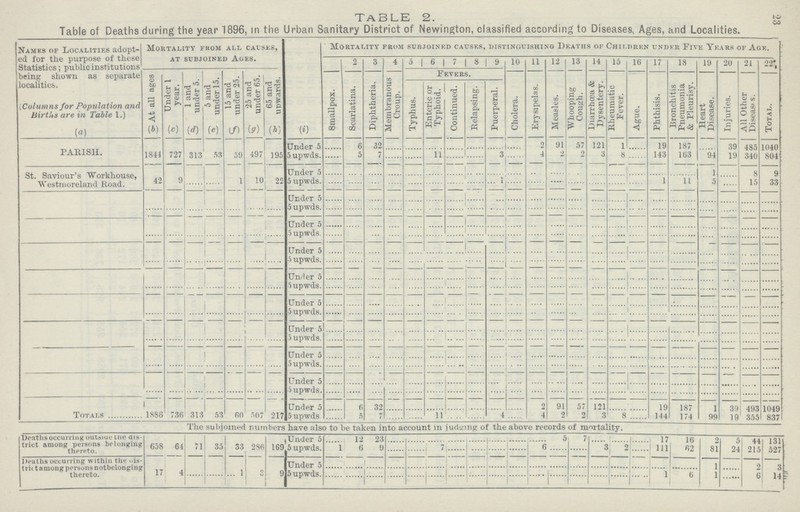 TABLE 2.
23
Table of Deaths during the year 1896, in the Urban Sanitary District of Newington, classified according to Diseases, Ages, and Localities.
NAMES OF LOCALITIES adopted for the purpose of these Statistics; public institutions being shown as separate localities.
(Columns for Population and Births are in Table 1.)
(a)
MORTALITY FROM ALL CAUSES, AT SUBJOINED AGES.
At all ages (b) Under 1 year. (c) 1 and under 5. (d) 5 and under 15. (e) 15 and under 25. (f) 25 and under 65. (g) 65 and upwards. (h) (i)
MORTALITY FROM SUBJOINED CAUSES, DISTINGUISHING DEATHS OF CHILDREN UNDER FIVE YEARS OF AGE.
2 3 4 5 6 7 8 9 10 11 12 13 14 15 16 17 18 19 20 21 22
FEVERS.
Smallpox. Scarlatina. Diphtheria. Membranous Croup. Typhus. Enteric or Typhoid. Continued. Relapsing. Puerperal. Cholera. Erysipelas. Measles. Whooping Cough. Diarrhœa & Dysentery. Rheumatic Fever. Ague. Phthisis. Bronchitis Pneumonia & Pleurisy. Heart Disease. Injuries. All Other Diseases. TOTAL.
PARISH. 1844 727 313 53 59 497 195
Under 5 6 32 2 91 57 121 1 19 187 39 485 1040
5 upwds. 5 7 11 3 4 2 2 3 8 143 163 94 19 340 804
St. Saviour's Workhouse, Westmoreland Road. 42 9 1 10 22
Under 5 1 8 9
5 upwds. 1 1 11 5 15 33
Under 5
5 upwds.
Under 5
5 upwds
Under 5
5 upwds.
Under 5
5 upwds.
Under 5
5 upwds.
Under 5
5 upwds.
Under 5
5 upwds.
Under 5
5 upwds.
TOTALS 1886 736 313 53 60 507 217
Under 5 6 32 2 91 57 121 19 187 1 39 493 1049
5 upwds. 5 7 11 4 4 2 2 3 8 144 174 99 19 355 837
The subjoined numbers have also to be taken into account in judging of the above records of mortality.
Deaths occurring outside the district among persons belonging thereto. 658 64 71 35 33 286 169
Under 5 12 23 5 7 17 16 2 5 44 131
5 upwds. 1 6 9 7 6 3 2 111 62 81 24 215 527
Deaths occurring within the district among persons not belonging thereto. 17 4 1 2 9
Under 5 1 2 3
5 upwds. 1 6 1 6 14